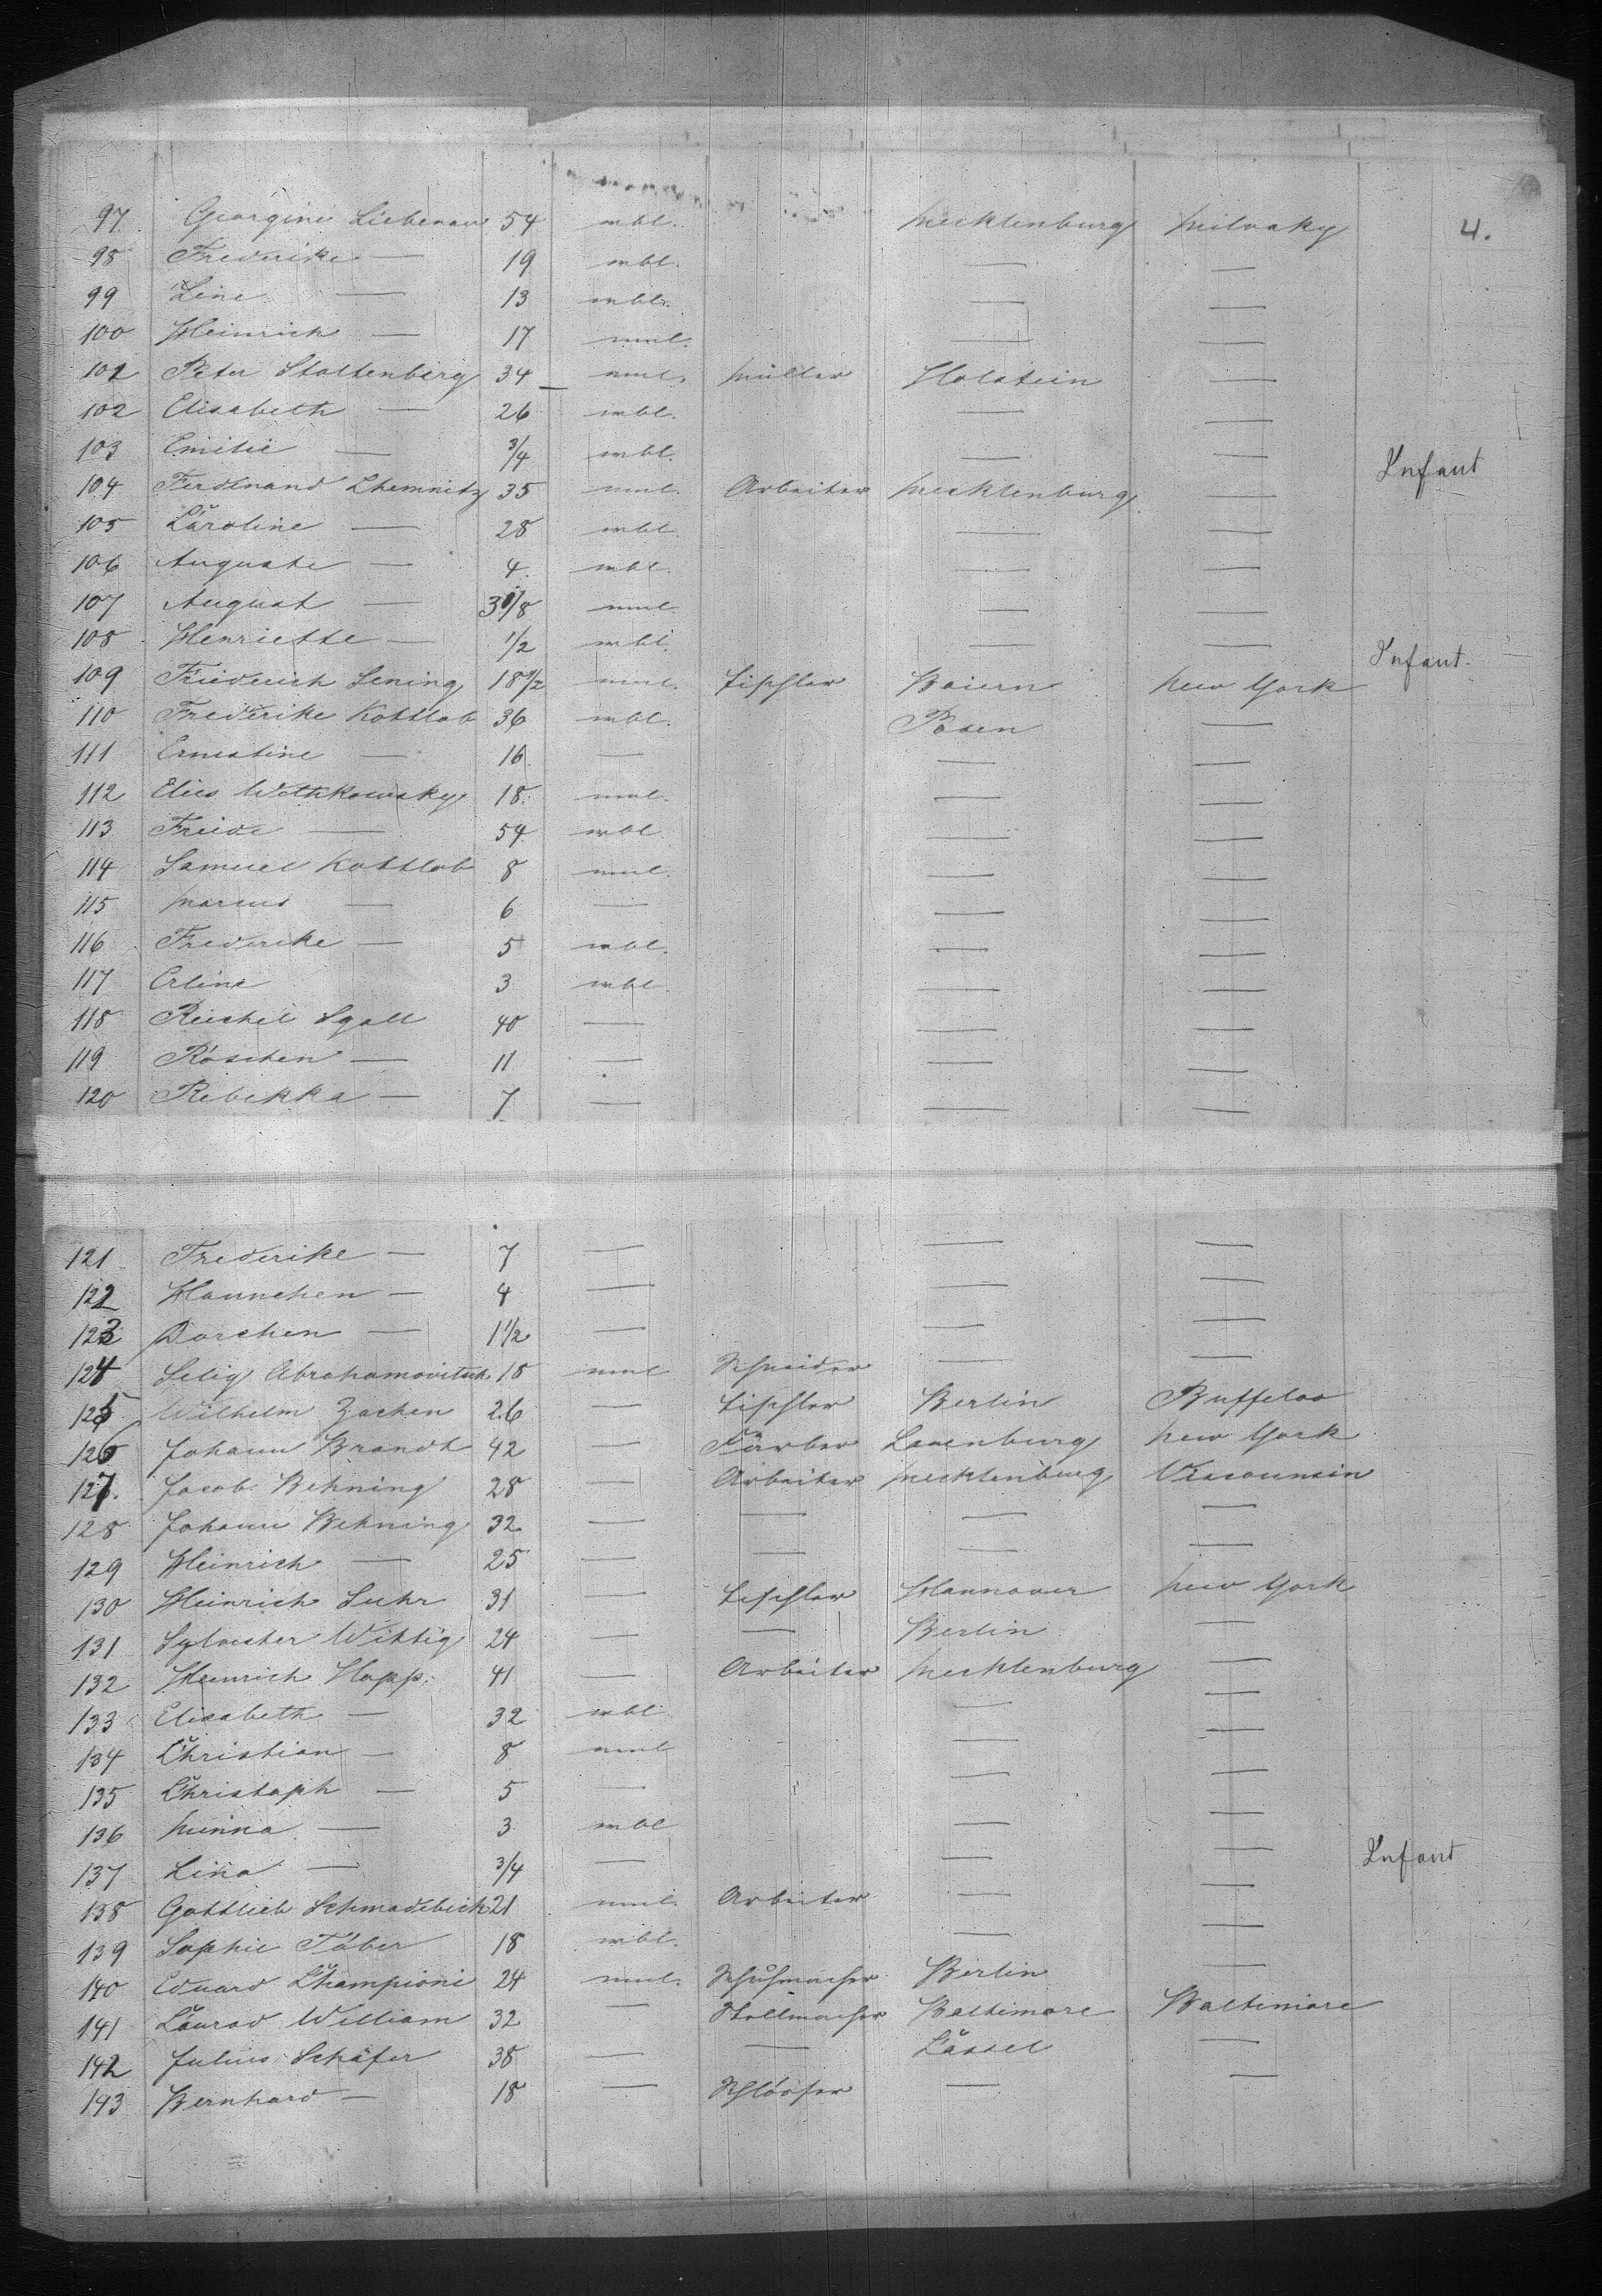 97. Georgine Liebenau 54 wbl. Mecklenburg Milvaky 4.
98 Frederike — 19 wbl. — —
99 Line — 13 wbl. — —
100 Heinrich — 17 mnl. — —
101 Peter Stoltenberg 34 mnl. Müller Holstein —
102 Elisabeth — 26 wbl. — —
103 Emilie — 3/4 wbl. — — Infant
104 Ferdinand Chemnitz 35 mnl. Arbeiter Mecklenburg —
105 Caroline — 28 wbl. — —
106 Auguste — 4. wbl. — —
107 August — 3 1/8 mnl. — —
108 Henriette — 1/2 wbl. — — Infant.
109 Friederich Lening 18 1/2 mnl. Tischler Baiern New York
110 Frederike Kottlob 36 wbl. Posen —
111 Ernestine — 16. — — —
112 Elies Witkkowsky 18. mnl. — —
113 Freide — 54 wbl. — —
114 Samuel Kottlob 8 mnl. — —
115 Marcus — 6 — — —
116 Frederike — 5 wbl. — —
117 Erline 3 wbl. — —
118 Reichel Sgall 40 — — —
119 Röschen — 11 — — —
120 Rebekka — 7 — — —
121 Frederike — 7 — — —
122 Hannchen — 4 — — —
123 Dorchen — 1 1/2 — — —
124 Selig Abrahamovitsch 18 mnl Schneider — —
125 Wilhelm Zachen 26 — Tischler Berlin Buffeloo
126 Johann Brandt 42 — Färber Lauenburg New York
127. Jacob Behning 28 — Arbeiter Mecklenburg Vissounsin
128 Johann Behning 32 — — — —
129 Heinrich — 25 — — — —
130 Heinrich Suhr 31 — Tischler Hannover New York
131 Sylvester Wittig 24 — — Berlin —
132 Heinrich Hopp. 41 — Arbeiter Mecklenburg —
133 Elisabeth — 32 wbl — —
134 Christian — 8 mnl — —
135 Christoph — 5 — — —
136 Minna — 3 wbl — —
137 Lina — 3/4 — — — Infant
138 Gottlieb Schmadebick 21 mnl. Arbeiter — —
139 Sophie Täber 18 wbl. — —
140 Eduard Championi 24 mnl. Schuhmacher Berlin —
141 Conrad William 32 — Stellmacher Baltimore Baltimore
142 Julius Schäfer 38 — — Cassel —
143 Bernhard — 18 — Schlosser — —